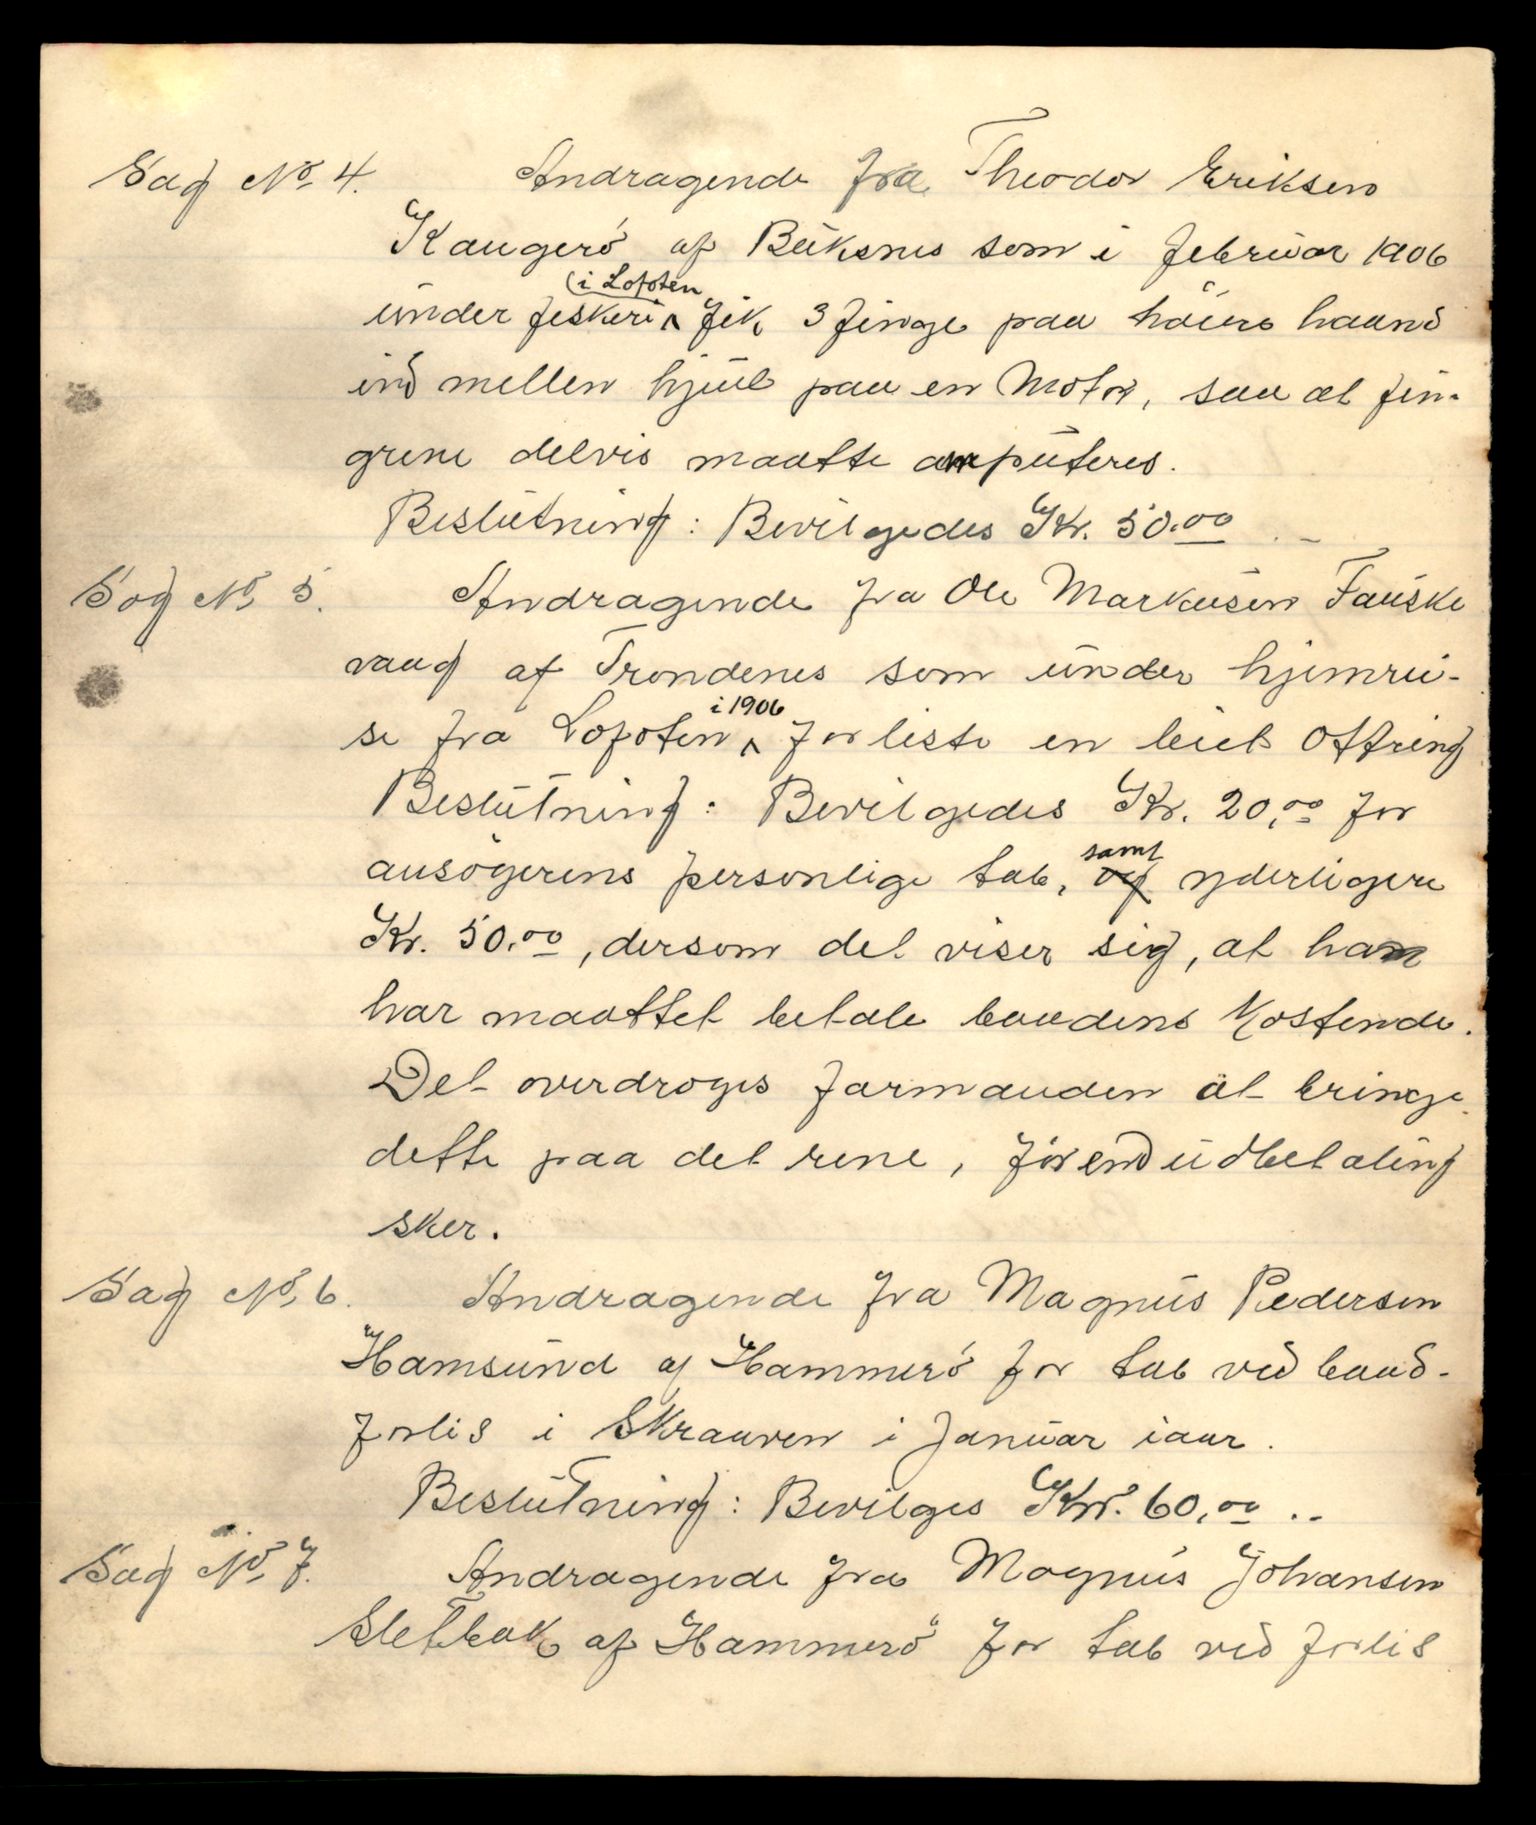 Sag No. 4. Andragende fra Theodor Eriksen
Kangerö af Buksnes som i februar 1906
under feskeri (i Lofoten) fik 3 finge paa höire haand
ind mellen hjul paa en Motor, saa at fin-
grene delvis maatte amputeres.
Beslutning: Bevilgedes Kr. 50.00
Sag No. 5. Andragende fra Ole Markusen Fauske
vaag af Trondenes som under hjemrei-
se fra Lofoten i 1906 forliste en leiet Ottring
Beslutning: Bevilgedes Kr. 20,00 for
ansögerens personlige tab, og samt yderligere
Kr. 50.00, dersom det viser sig, at han
har maattet betale baadens Kostende.
Det overdroges formanden at bringe
dette paa det rene, förend udbetaling
sker.
Sag No. 6. Andragende fra Magnus Pedersen
Hamsund af Hammerö for tab ved baad-
forlis i Skraaven i Januar iaar.
Beslutning: Bevilges Kr. 60,00 ..
Sag No. 7. Andragende fra Magnus Johansen
Sletbak af Hammerö for tab ved forlis